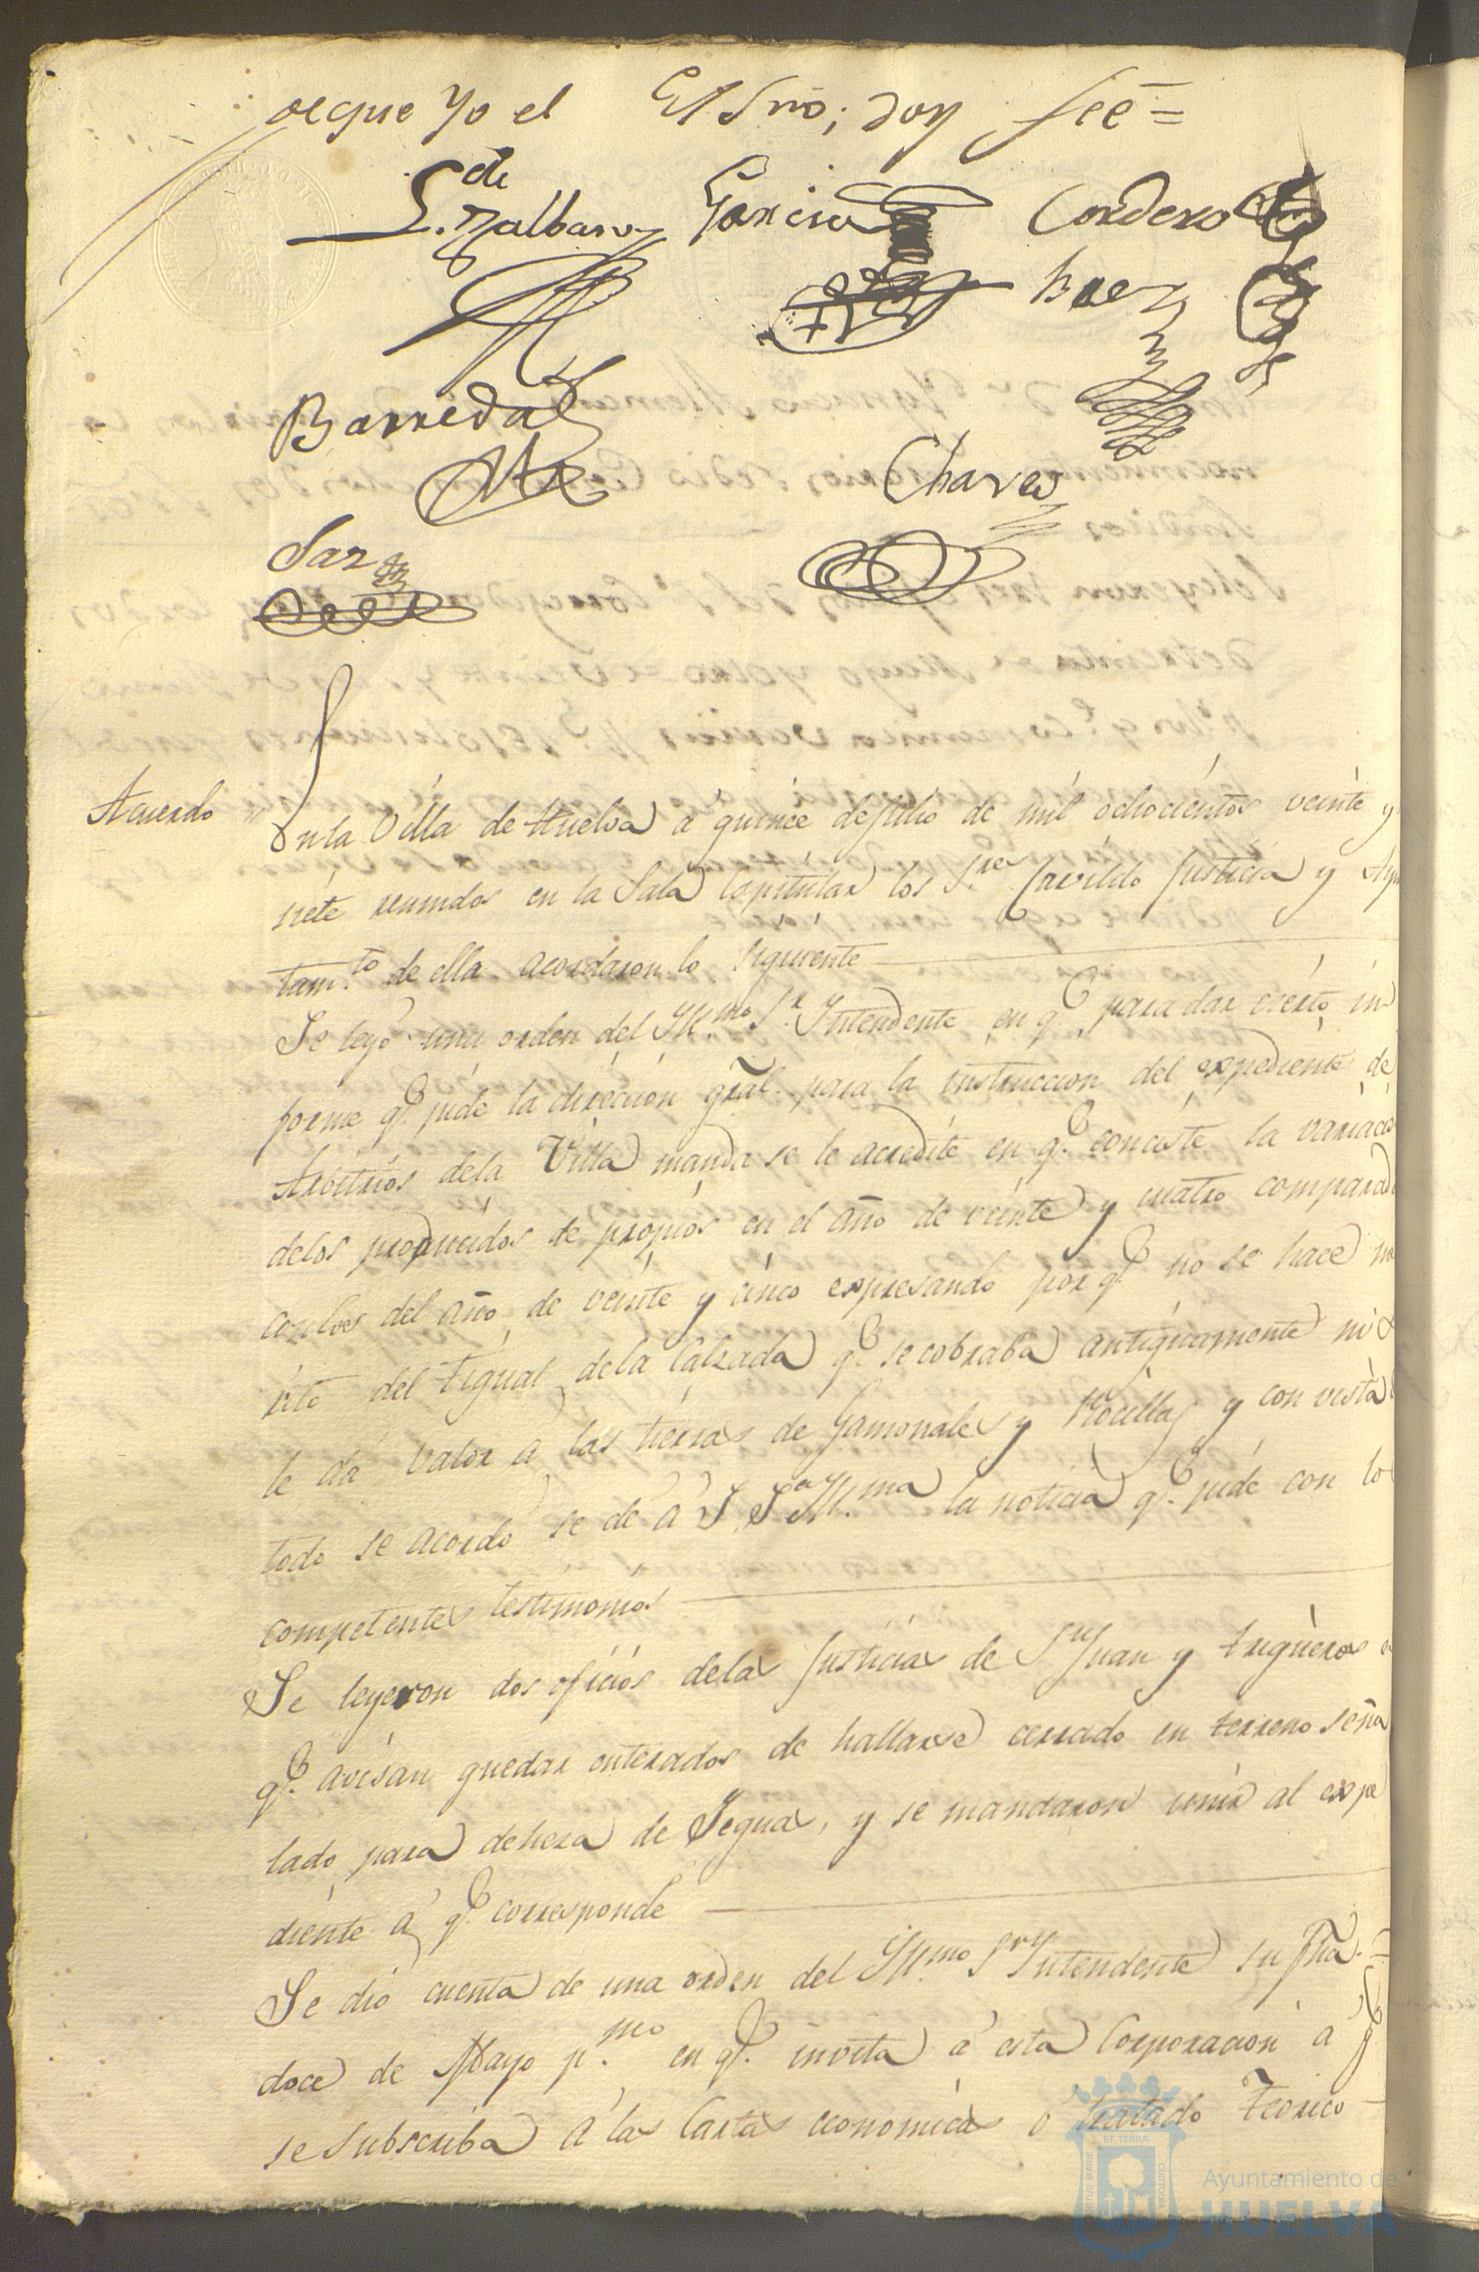 de que Yo el Essno; doy feé =
L. de Malbar
Garcia
Cordero
Baez
Barreda
Chaves
Saz
Acuerdo = En la Villa de Huelva á quince de Julio de mil ochocientos veinte y
siete reunidos en la Sala Capitular los S.res Cavildo Justicia y Ayun
tam.to de ella acordaron lo siguiente
Se leyó una orden del Yll.mo S.r Yntendente en q.e para dar cierto in
forme q.e pide la direccion gral. para la instruccion del expediente de
Arbitrios dela Villa manda se le acredite en q.e conciste la variacio
delos producidos de propios en el año de veinte y cuatro comparado
conlos del año de veinte y cinco expresando por q.e no se hace me
rito del tigual dela Calzada q.e se cobraba antiguamente ni se
le dá valor á las tierras de Gamonales y Rocilla, y con vista
todo se acordó se dé á S. S.a Yll.ma la noticia q.e pide con lo
competentes testimonios
Se leyeron dos oficios delas Justicias de S.n Juan y trigueros e
q.e avisan quedar enterados de hallarse cerrado en terreno seña
lado para dehesa de Yeguas, y se mandaron unir al expe
diente á q.e corresponde
Se dió cuenta de una orden del Yll.mo S.r Yntendente su fha.
doce de Mayo p.mo en q.e invita á esta Corporacion á q.e
se subscriba á las Cartas economicas ó tratado Teorico
ET TERRÆ
CUSTODIA
Ayuntamiento de
HUELVA